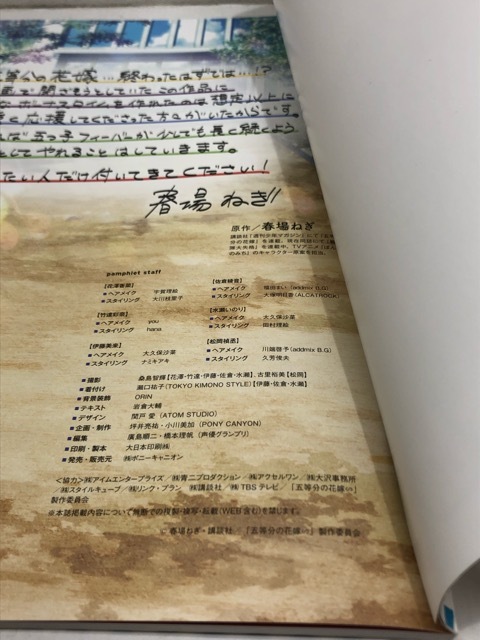 等分の花嫁…終わったはずでは…!?
で閉さそうとしていたこの作品に
なボーナスタイムを作れたのは想定以上に
く応援してくださった方々がいたからです。
ば五つ子フィーバーが少しでも長く続くよう
としてやれることはしていきます。
たい人だけ付いてきてください!
春場ねぎ
原作/春場ねぎ
講談社「週刊少年マガジン」にて「五等
分の花嫁」を連載。現在同誌にて「戦
隊大失格」を連載中。TVアニメ「ぽん
のみち」のキャラクター原案を担当。
pamphlet staff
【花澤香菜】
■ヘアメイク 宇賀理絵
■スタイリング 大川枝里子
【竹達彩奈】
■ヘアメイク you
■スタイリング hana
【伊藤美来】
■ヘアメイク 大久保沙菜
■スタイリング ナミキアキ
【佐倉綾音】
■ヘアメイク 福田まい(addmix B.G)
■スタイリング 大塚明日香(ALCATROCK)
【水瀬いのり】
■ヘアメイク 大久保沙菜
■スタイリング 田村理絵
【松岡禎丞】
■ヘアメイク 川端啓予(addmix B.G)
■スタイリング 久芳俊夫
■撮影 桑島智輝[花澤・竹達・伊藤・佐倉・水瀬]、古里裕美[松岡]
■着付け 瀬口祐子(TOKYO KIMONO STYLE)[伊藤・佐倉・水瀬]
■背景装飾 ORIN
■テキスト 岩倉大輔
■デザイン 関戸 愛(ATOM STUDIO)
■企画・制作 坪井亮祐・小川美加(PONY CANYON)
■編集 廣島順二・橋本理帆(声優グランプリ)
■印刷・製本 大日本印刷㈱
■発売・販売元 ㈱ポニーキャニオン
<協力>㈱アイムエンタープライズ/㈱青二プロダクション/㈱アクセルワン/㈱大沢事務所
/㈱スタイルキューブ/㈱リンク・プラン/㈱講談社/㈱TBSテレビ/「五等分の花嫁∽」
製作委員会
※本誌掲載内容について無断での複製・複写・転載(WEB含む)を禁じます。
©春場ねぎ・講談社/「五等分の花嫁∽」製作委員会